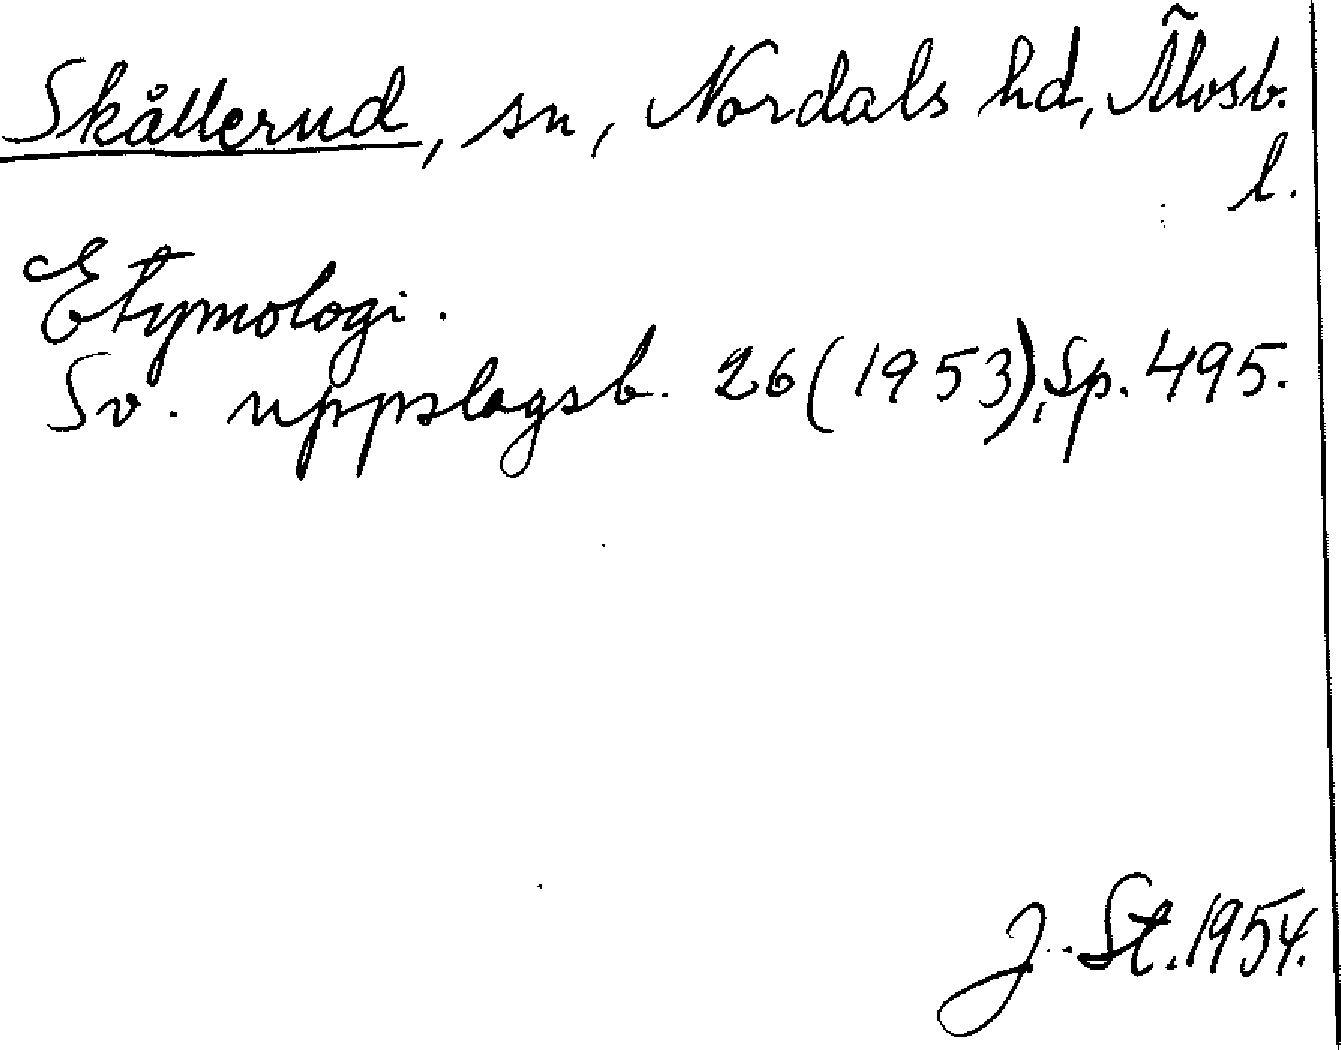 Skållerud, sn, Nordals hd, Älvsb.
l.
Etymologi.
Sv. uppslagsb. 26 (1953), Sp. 495.
J. St. 1954.